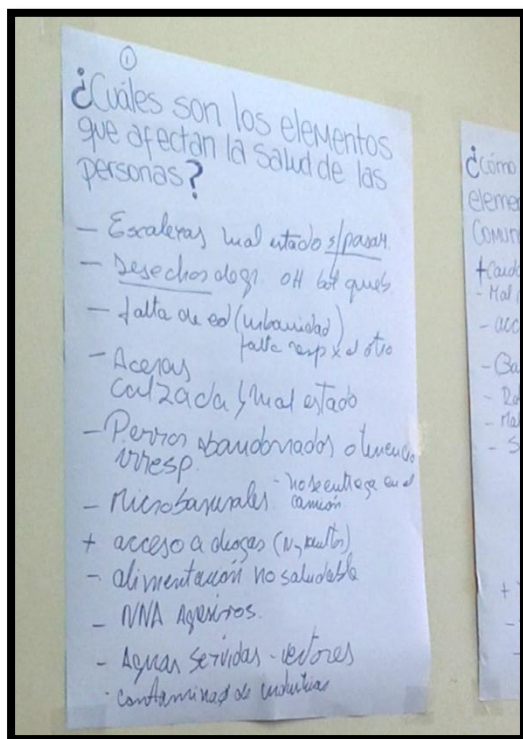 ①
¿Cuáles son los elementos
que afectan la salud de las
personas?
- Escaleras mal estado s/pasam.
- Desechos dogr. OH bot queb
- falta de ed (urbanidad)
falta resp x el otro
- Aceras
calzada mal estado
- Perros abandonados o tenencia
irresp.
- Microbasurales - no se entrega en el
camión
+ acceso a drogas (N y adultos)
- alimentación no saludable
- NNA Agresivos.
- Aguas servidas - vectores
- contaminac de industrias
¿Cómo
eleme
Comun
- Mal
- acc
- Ba
- Ma
- S
+
-